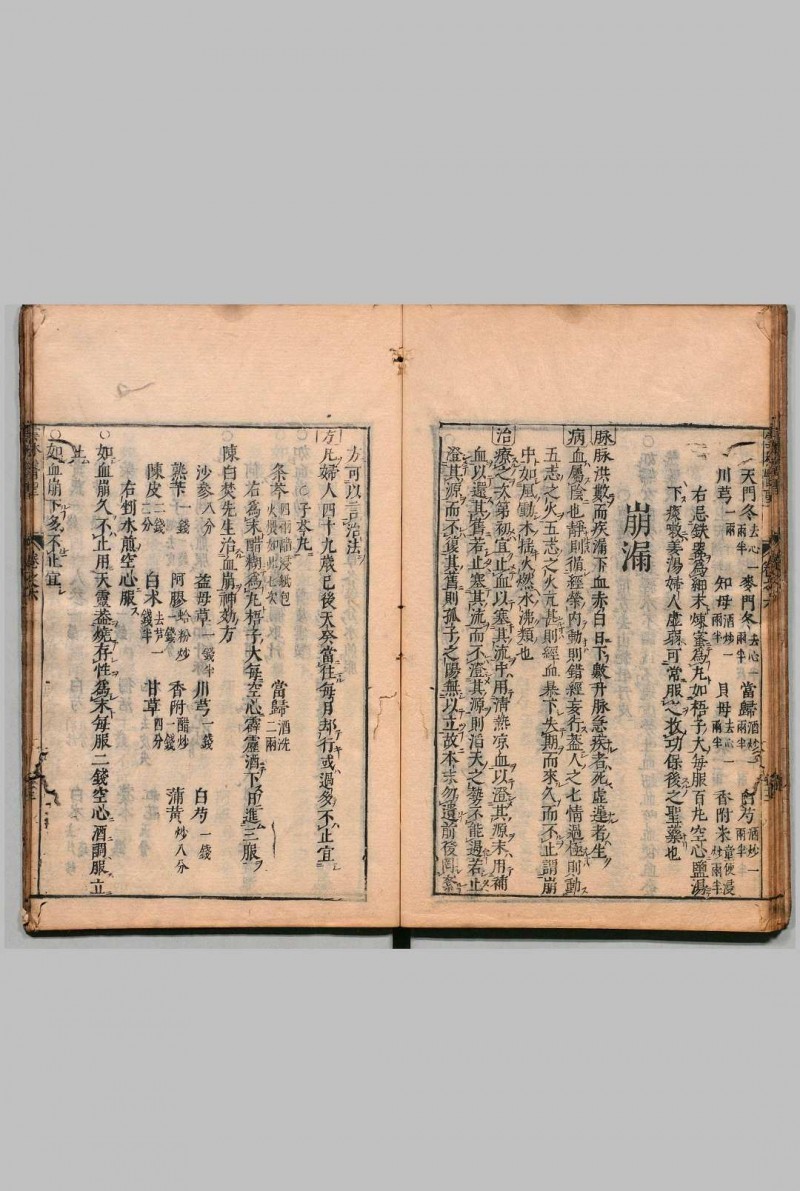 天門冬去心一兩半 麥門冬去心一兩半 當歸酒炒一兩半 白芍酒炒一兩半
川芎一兩 知母酒炒一兩半 貝母去心一兩半 香附米童便浸炒兩半
右忌鉄器爲細末煉蜜爲丸如梧子大每服百丸空心鹽湯
下痰嗽姜湯婦人虛弱可常服之收功保後之聖藥也
崩漏
脉脉洪數而疾漏下血赤白日下數升脉急疾者死虛遲者生
病血屬陰也靜則循經榮内動則錯經妄行蓋人之七情過極則動
五志之火五志之火亢甚則經血暴下失期而來久而不止謂崩
中如風動木搖火燃水沸類也
治療之次第初宜止血以塞其流中用清熱凉血以澄其源末用補
血以還其舊若止塞其流而不澄其源則滔天之勢不能遏若止
澄其源而不復其舊則孤子之陽無以立故本末勿遺前後
方可以言治法
方凡婦人四十九歳已後天癸當住每月却行或過多不止宜
子芩丸
条芩四兩醋浸紙包火煨如此七次 當歸酒洗二兩
右爲末醋糊爲丸梧子大每空心霹靂酒下日進三服
陳白焚先生治血崩神効方
沙參八分 益母草一錢半 川芎一錢 白芍一錢
熟苄一錢 阿膠蛤粉炒一錢 香附醋炒一錢 蒲黃炒八分
陳皮二分 白朮去芦一錢半 甘草四分
右剉水煎空心服
○如血崩久不止用天靈蓋燒存性爲末每服二錢空心酒調服立
止
○如血崩下多不止宜